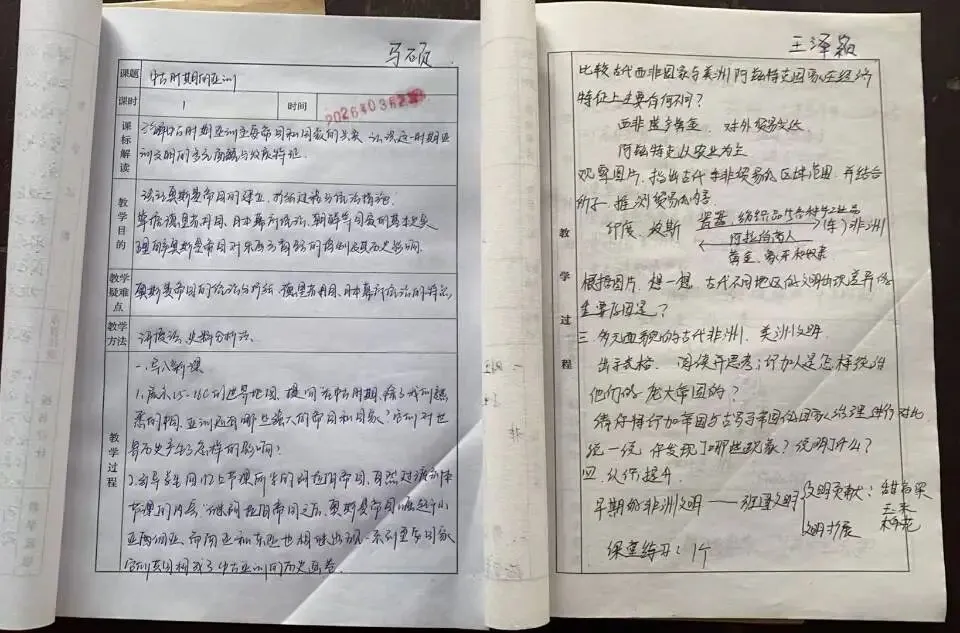 马硕
课题 中古时期的亚洲
课时 1 时间
课标解读
了解中古时期亚洲主要帝国和国家的关系 认识这一时期亚
洲文明的多元面貌与发展特征.
教学目的
奥斯曼帝国的建立
德里苏丹国、日本幕府统治、朝鲜等国家的基本史实
理解奥斯曼帝国对东西方商路的控制及其历史影响.
教学疑难点
奥斯曼帝国的统治与扩张 德里苏丹国、日本幕府统治的特点
教学方法
讲授法、史料分析法.
教学过程
一、导入新课
1.展示15-18C的世界地图, 提问:在中古时期,除了我们熟
悉的中国,亚洲还有哪些强大的帝国和国家?它们对世
界历史产生了怎样的影响?
2.引导学生回忆上节课所学的阿拉伯帝国,自然过渡到本
节课的内容:继阿拉伯帝国之后,奥斯曼帝国崛起于小
亚细亚,而南亚和东亚也相继出现一系列重要国家
它们共同构成了中古亚洲的历史画卷.
王泽颖
教学过程
比较古代西非国家与美洲阿兹特克国家在经济
特征上主要有何不同?
西非盛产黄金、对外贸易发达
阿兹特克以农业为主
观察图片,指出古代东非贸易的区域范围,并结合
所学,推测贸易内容
印度、波斯 瓷器、纺织品等各种手工业品 (东)非洲
阿拉伯商人
黄金、象牙和奴隶
根据图片,想一想,古代不同地区的文明出现差异的
重要原因是?
三.多元面貌的古代非洲、美洲文明
出示表格. 阅读并思考:印加人是怎样统治
他们的庞大帝国的?
请你将印加帝国与古罗马帝国的国家治理进行对比
统一统 你发现了哪些现象?说明了什么?
四.
早期的非洲文明——班图文明 文明贡献: 甜高粱
玉米
棉花
文明扩展
课堂练习:1个